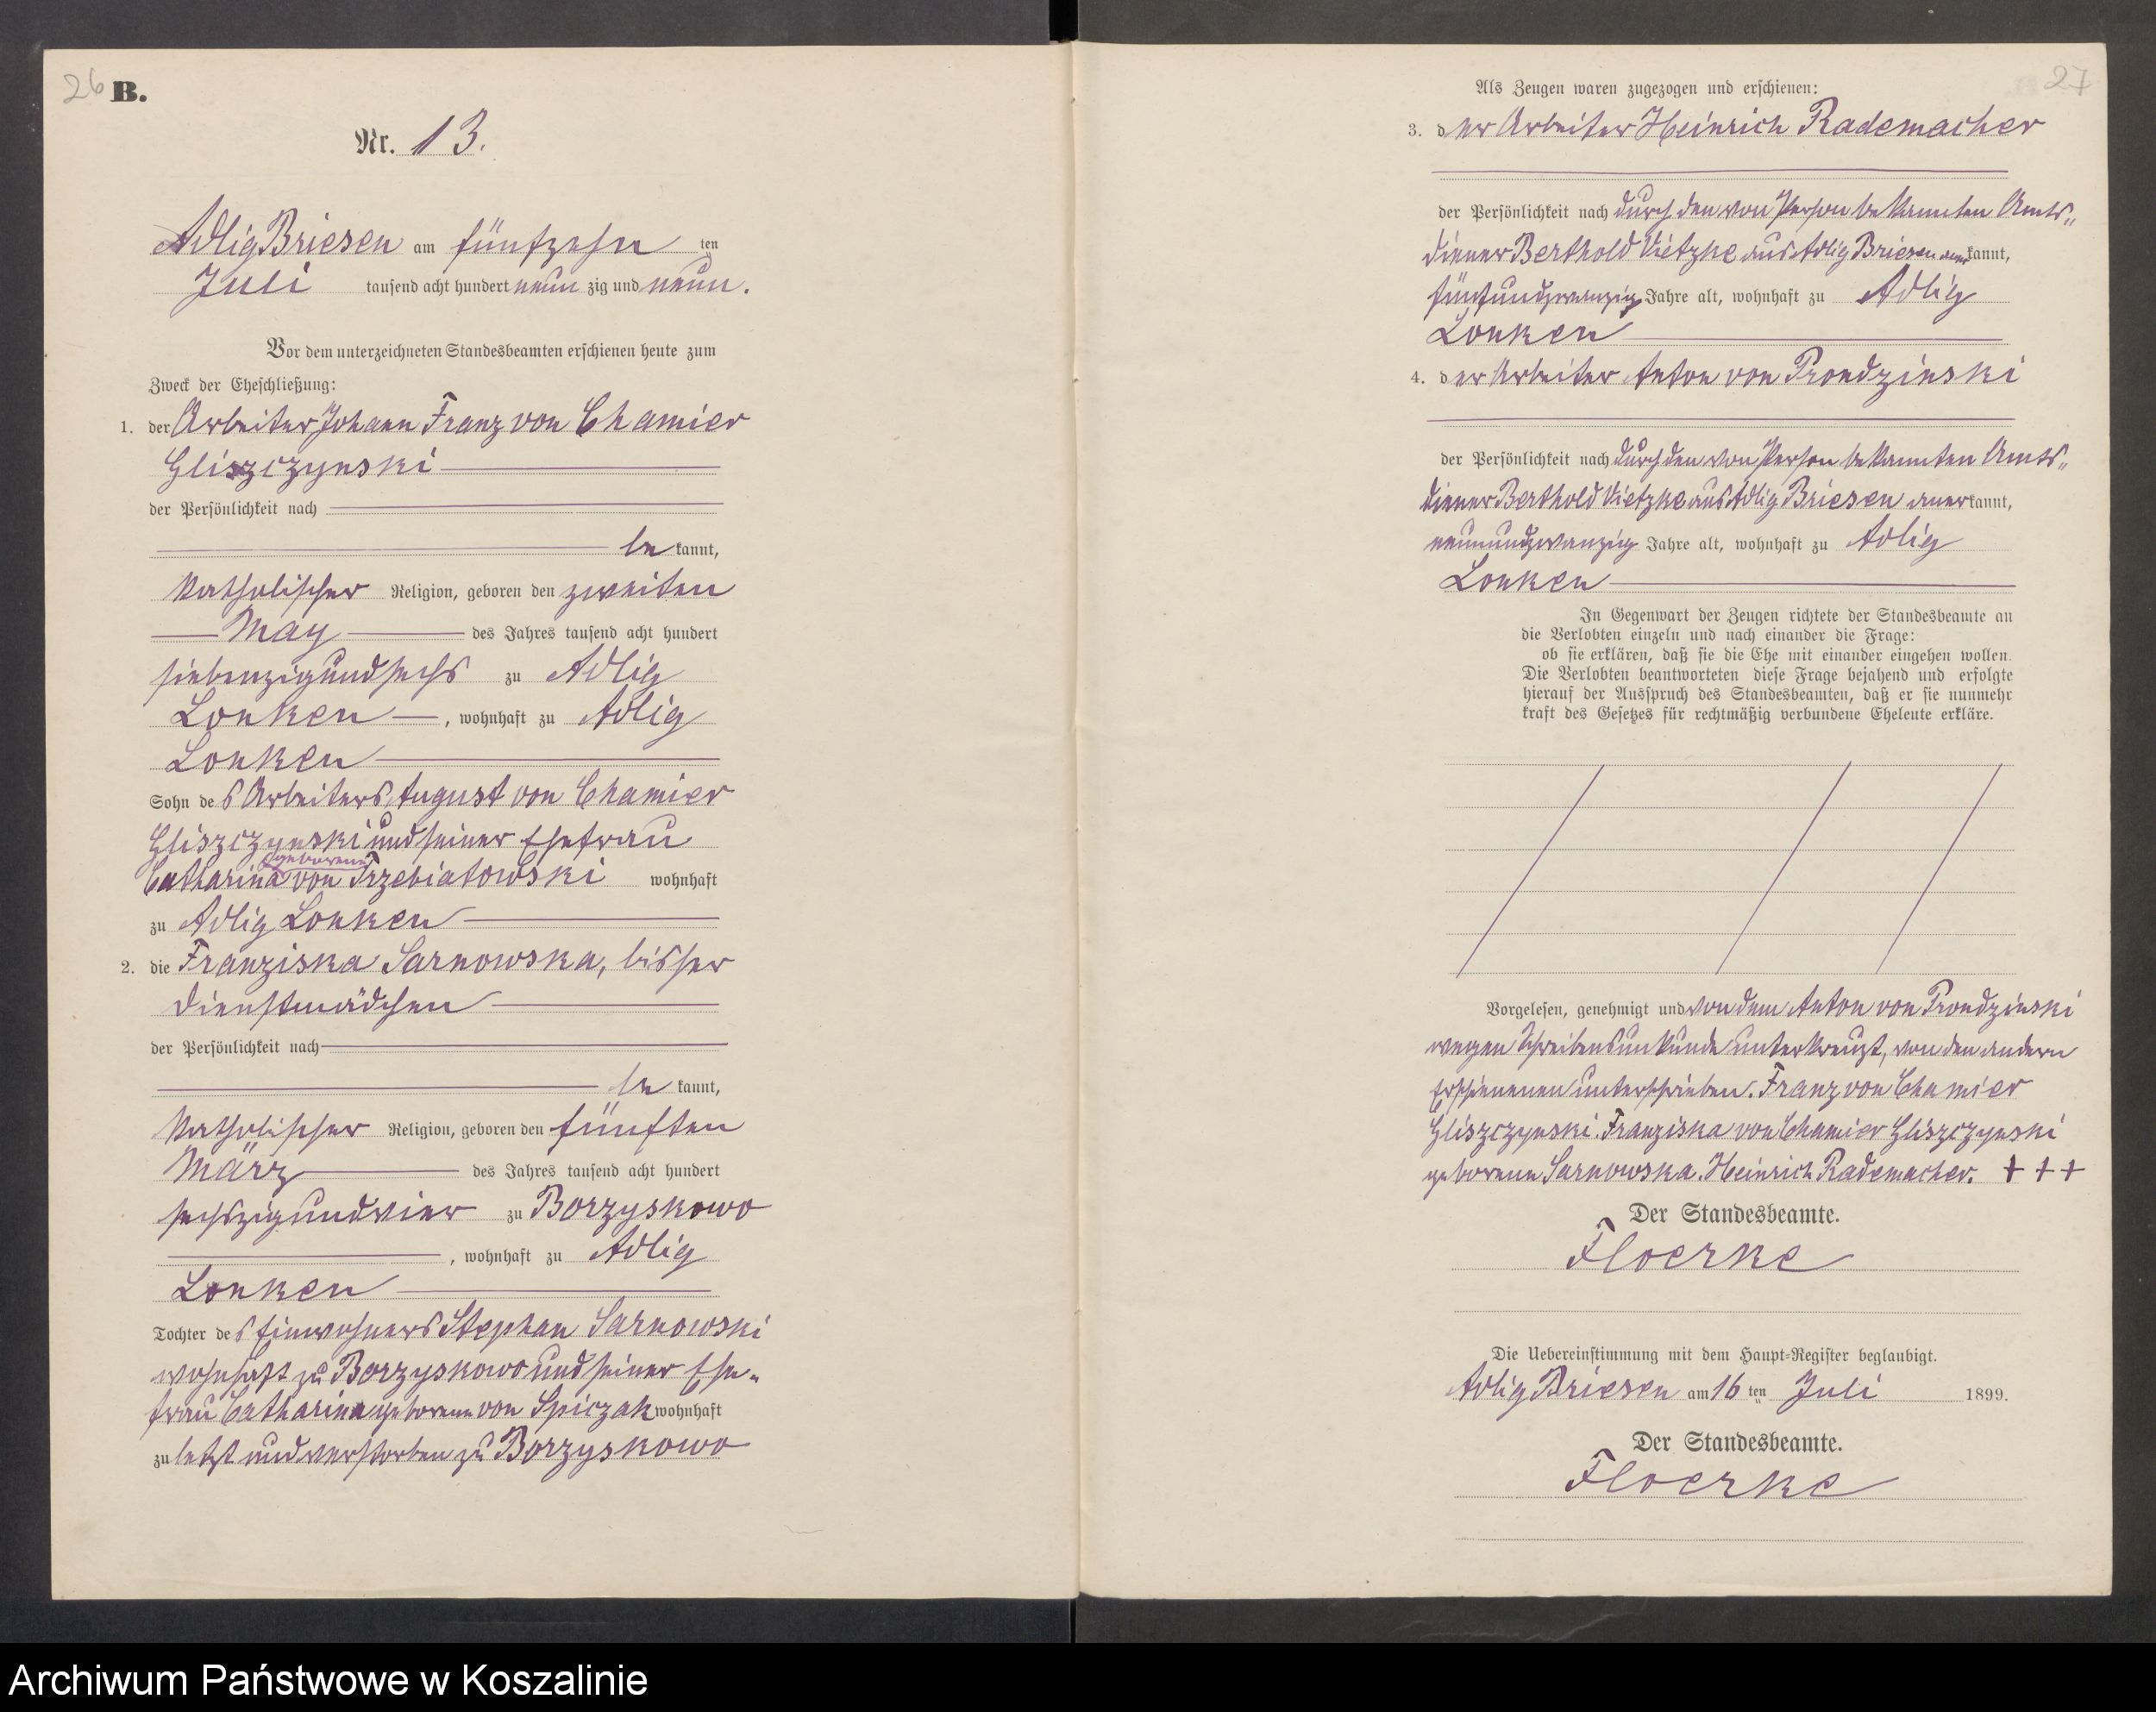 26 B.
Nr. 13.
Adlig Briesen am fünfzehn ten
Juli tausend acht hundert neun zig und neun.
Vor dem unterzeichneten Standesbeamten erschienen heute zum
Zweck der Eheschließung:
1. der Arbeiter Johann Franz von Chamier
Gliszczynski
der Persönlichkeit nach
be kannt,
katholischer Religion, geboren den zweiten
May des Jahres tausend acht hundert
siebenzig und sechs zu Adlig
Lonken, wohnhaft zu Adlig
Lonken
Sohn des Arbeiters August von Chamier
Gliszczynski und seiner Ehefrau
geborene
Catharina von Trzebiatowski wohnhaft
zu Adlig Lonken
2. die Franziska Sarnowska, bisher
Dienstmädchen
der Persönlichkeit nach
be kannt,
katholischer Religion, geboren den fünften
März des Jahres tausend acht hundert
sechszig und vier zu Borzyskowo
, wohnhaft zu Adlig
Lonken
Tochter des Einwohners Stephan Sarnowski
wohnhaft zu Borzyskowo und seiner Ehe-
frau Catharina geborene von Spiczak wohnhaft
zu letzt und verstorben zu Borzyskowo
27
Als Zeugen waren zugezogen und erschienen:
3. der Arbeiter Heinrich Rademacher
der Persönlichkeit nach durch den von Person bekannten Amts„
diener Berthold Vietzke aus Adlig Briesen aner kannt,
fünfundzwanzig Jahre alt, wohnhaft zu Adlig
Lonken
4. der Arbeiter Anton von Prondzinski
der Persönlichkeit nach durch den von Person bekannten Amts„
diener Berthold Vietzke aus Adlig Briesen aner kannt,
neunundzwanzig Jahre alt, wohnhaft zu Adlig
Lonken
In Gegenwart der Zeugen richtete der Standesbeamte an
die Verlobten einzeln und nach einander die Frage:
ob sie erklären, daß sie die Ehe mit einander eingehen wollen.
Die Verlobten beantworteten diese Frage bejahend und erfolgte
hierauf der Ausspruch des Standesbeamten, daß er sie nunmehr
kraft des Gesetzes für rechtmäßig verbundene Eheleute erkläre.
Vorgelesen, genehmigt und von dem Anton von Prondzinski
wegen Schreibensunkunde unterkreuzt, von den andern
Erschienenen unterschrieben. Franz von Chamier
Gliszczynski. Franziska von Chamier Gliszczynski
geborene Sarnowska. Heinrich Rademacher. + + +
Der Standesbeamte.
Floerke
Die Uebereinstimmung mit dem Haupt-Register beglaubigt.
Adlig Briesen am 16 ten Juli 1899.
Der Standesbeamte.
Floerke
Archiwum Państwowe w Koszalinie